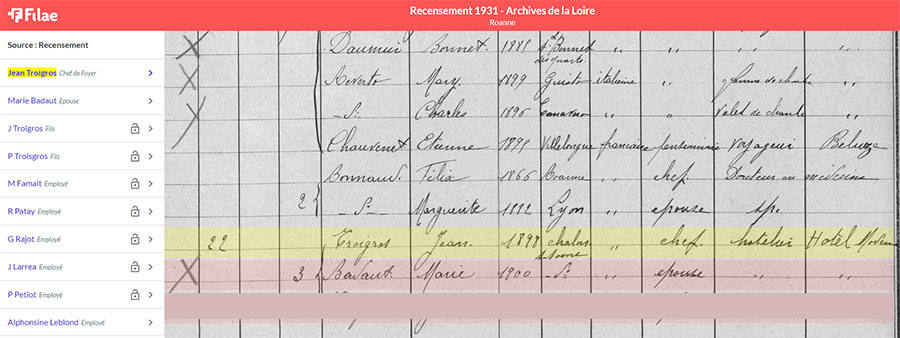 Filae
Recensement 1931 - Archives de la Loire
Roanne
Source : Recensement
Jean Troigros Chef de Foyer
Marie Badaut Epouse
J Troigros Fils
P Troisgros Fils
M Famait Employé
R Patay Employé
G Rajot Employé
J Larrea Employé
P Petiot Employé
Alphonsine Leblond Employé
Bonnet. 1881 St Bonnet des quarts " " "
Mary 1899 italienne femme de chamb "
- St - Charles 1896 " " Valet de chamb "
Chauvenet Etienne 1891 Villelongue francaise pensionnaire Voyageur
Bonnaud. Félix 1866 Roanne " chef. Docteur en médecine
2 - St - Marguerite 1892 Lyon " epouse sp.
22 Troigros Jean. 1898 chalon s Saone " chef. hotelier Hotel Moderne
3 Badaut Marie 1900 - St - " epouse " "